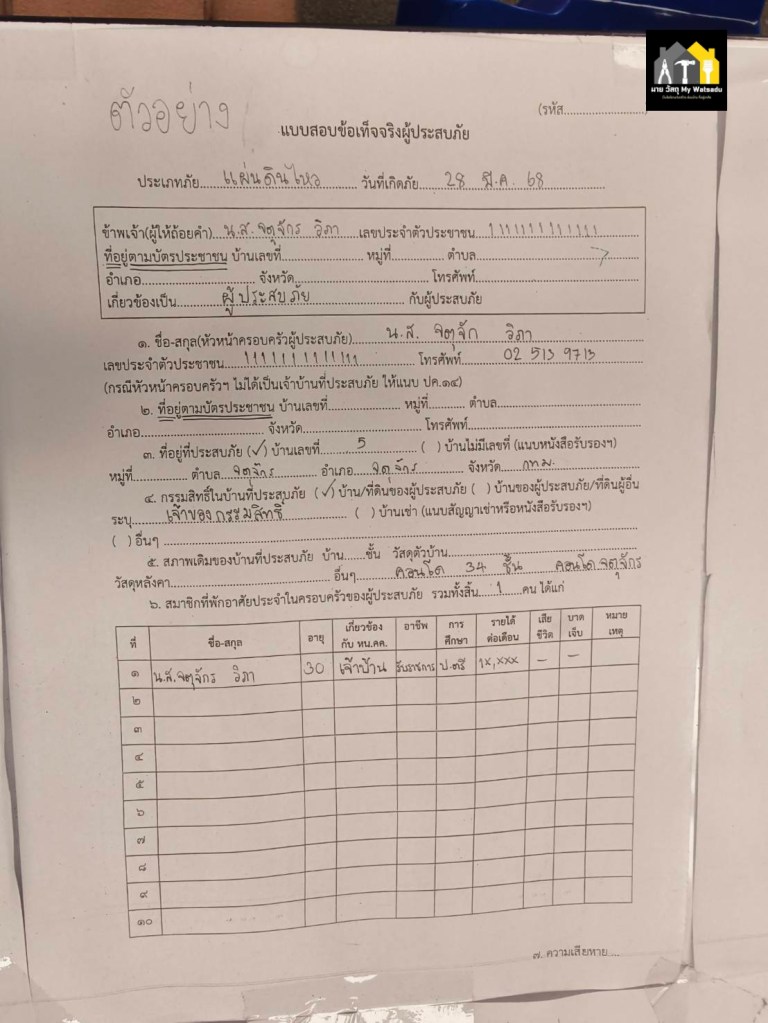 นาย วัสดุ My Watsadu
ตัวอย่าง
(รหัส........................)
แบบสอบข้อเท็จจริงผู้ประสบภัย
ประเภทภัย....แผ่นดินไหว.... วันที่เกิดภัย....28 มี.ค. 68....
ข้าพเจ้า(ผู้ให้ถ้อยคำ)...น.ส. จตุจักร วิภา...เลขประจำตัวประชาชน...1111111111111...
ที่อยู่ตามบัตรประชาชน บ้านเลขที่.................... หมู่ที่.............. ตำบล....................
อำเภอ.............................. จังหวัด.............................. โทรศัพท์..............................
เกี่ยวข้องเป็น....ผู้ประสบภัย....กับผู้ประสบภัย
๑. ชื่อ-สกุล(หัวหน้าครอบครัวผู้ประสบภัย)....น.ส. จตุจัก วิภา....
เลขประจำตัวประชาชน...1111111111111... โทรศัพท์....02 513 9713....
(กรณีหัวหน้าครอบครัวฯ ไม่ได้เป็นเจ้าบ้านที่ประสบภัย ให้แนบ ปค.๑๔)
๒. ที่อยู่ตามบัตรประชาชน บ้านเลขที่.................... หมู่ที่........... ตำบล....................
อำเภอ.............................. จังหวัด.............................. โทรศัพท์..............................
๓. ที่อยู่ที่ประสบภัย (✓) บ้านเลขที่....5.... ( ) บ้านไม่มีเลขที่ (แนบหนังสือรับรองฯ)
หมู่ที่.............. ตำบล...จตุจักร... อำเภอ...จตุจักร... จังหวัด...กทม....
๔. กรรมสิทธิ์ในบ้านที่ประสบภัย (✓) บ้าน/ที่ดินของผู้ประสบภัย ( ) บ้านของผู้ประสบภัย/ที่ดินผู้อื่น
ระบุ....เจ้าของกรรมสิทธิ์.... ( ) บ้านเช่า (แนบสัญญาเช่าหรือหนังสือรับรองฯ)
( ) อื่นๆ ............................................................
๕. สภาพเดิมของบ้านที่ประสบภัย บ้าน......ชั้น วัสดุตัวบ้าน..............................
วัสดุหลังคา..............................อื่นๆ...คอนโด 34 ชั้น คอนโดจตุจักร
๖. สมาชิกที่พักอาศัยประจำในครอบครัวของผู้ประสบภัย รวมทั้งสิ้น....1....คน ได้แก่
ที่ ชื่อ-สกุล อายุ เกี่ยวข้องกับ หน.คค. อาชีพ การศึกษา รายได้ต่อเดือน เสียชีวิต บาดเจ็บ หมายเหตุ
๑ น.ส.จตุจักร วิภา 30 เจ้าบ้าน รับราชการ ป.ตรี 1x,xxx – –
๒
๓
๔
๕
๖
๗
๘
๙
๑๐
๗. ความเสียหาย....